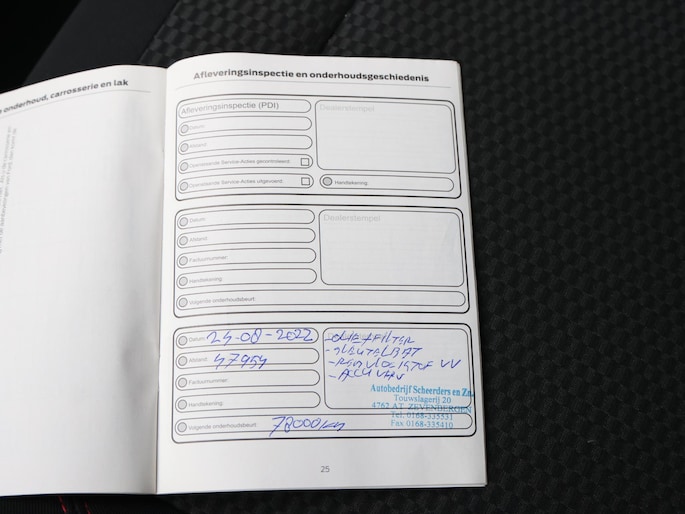 onderhoud, carrosserie en lak
Afleveringsinspectie en onderhoudsgeschiedenis
Afleveringsinspectie (PDI)
Dealerstempel
Datum:
Afstand:
Openstaande Service-Acties gecontroleerd:
Openstaande Service-Acties uitgevoerd:
Handtekening:
Datum:
Dealerstempel
Afstand:
Factuurnummer:
Handtekening:
Volgende onderhoudsbeurt:
Datum: 24-08-2022
Afstand: 47954
Factuurnummer:
Handtekening:
Volgende onderhoudsbeurt: 78000km
-OLIE+FILTER
-SLEUTELBAT
-REMVLOEISTOF VV
-ACCU VERV
Autobedrijf Scheerders en Zn.
Touwslagerij 20
4762 AT ZEVENBERGEN
Tel. 0168-335531
Fax 0168-335410
25